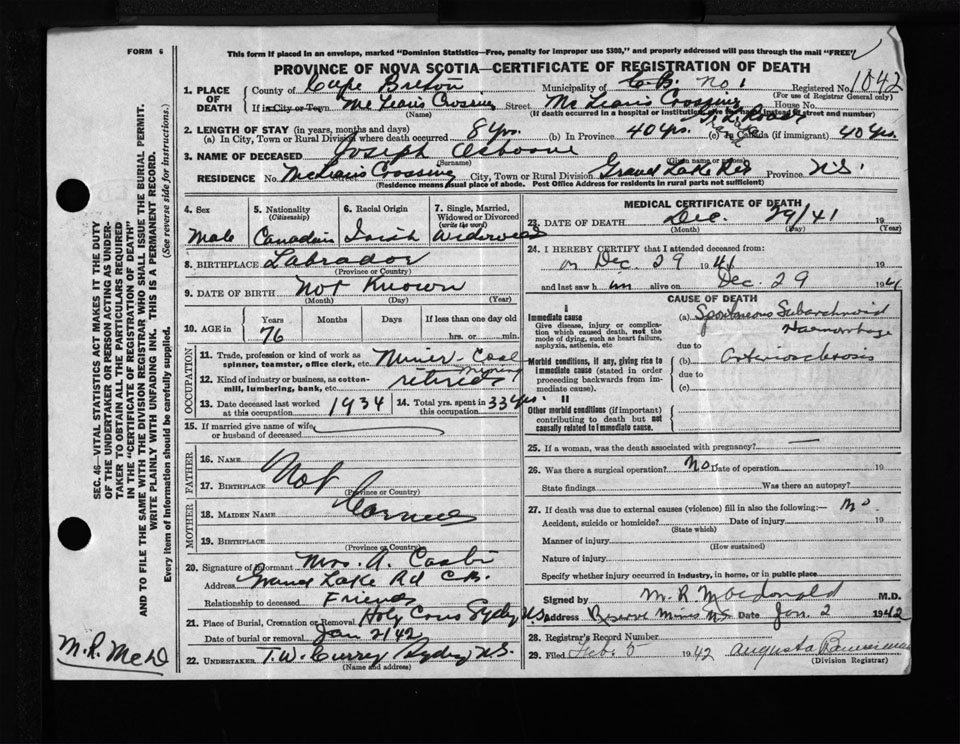 FORM 6
This form if placed in an envelope, marked "Dominion Statistics—Free, penalty for improper use $300," and properly addressed will pass through the mail "FREE"
PROVINCE OF NOVA SCOTIA—CERTIFICATE OF REGISTRATION OF DEATH
1. PLACE OF DEATH
County of Cape Breton Municipality of C.B. No. 1 Registered No. 1042
(For use of Registrar General only)
If in City or Town McLeans Crossing Street McLeans Crossing House No.
(Name) (If death occurred in a hospital or institution give its name instead of street and number)
2. LENGTH OF STAY (in years, months and days)
(a) In City, Town or Rural Division where death occurred 8 yrs. (b) In Province 40 yrs. (c) in Canada (if immigrant) 40 yrs.
3. NAME OF DECEASED Joseph Osborne
(Surname) (Given name or names)
RESIDENCE No. McLeans Crossing City, Town or Rural Division Grand Lake Rd Province N.S.
(Residence means usual place of abode. Post Office Address for residents in rural parts not sufficient)
4. Sex Male
5. Nationality (Citizenship) Canadian
6. Racial Origin Irish
7. Single, Married, Widowed or Divorced (write the word) Widowed
8. BIRTHPLACE Labrador
(Province or Country)
9. DATE OF BIRTH Not Known
(Month) (Day) (Year)
10. AGE in Years Months Days If less than one day old
76 hrs. or min.
OCCUPATION
11. Trade, profession or kind of work as spinner, teamster, office clerk, etc. Miner - Coal
12. Kind of industry or business, as cotton-mill, lumbering, bank, etc. Mining retired
13. Date deceased last worked at this occupation 1934
14. Total yrs. spent in this occupation 33 yrs.
15. If married give name of wife or husband of deceased
FATHER
16. NAME Not
17. BIRTHPLACE
(Province or Country)
MOTHER
18. MAIDEN NAME
19. BIRTHPLACE
(Province or Country)
20. Signature of Informant Mrs. A.
Address Grand Lake Rd C.B.
Relationship to deceased Friend
21. Place of Burial, Cremation or Removal Holy Cross Sydney N.S.
Date of burial or removal Jan 2/42
22. UNDERTAKER T.W. Curry Sydney N.S.
(Name and address)
MEDICAL CERTIFICATE OF DEATH
23. DATE OF DEATH Dec. 29/41 19
(Month) (Day) (Year)
24. I HEREBY CERTIFY that I attended deceased from:
on Dec. 29 1941 19
and last saw him alive on Dec. 29 1941
CAUSE OF DEATH
I
Immediate cause
Give disease, injury or complication which caused death, not the mode of dying, such as heart failure, asphyxia, asthenia, etc
(a) Spontaneous Subarachnoid Haemorrhage
due to
Morbid conditions, if any, giving rise to immediate cause (stated in order proceeding backwards from immediate cause).
(b) arteriosclerosis
due to
(c)
II
Other morbid conditions (if important) contributing to death but not causally related to immediate cause.
25. If a woman, was the death associated with pregnancy? —
26. Was there a surgical operation? no Date of operation 19
State findings Was there an autopsy?
27. If death was due to external causes (violence) fill in also the following:— no
Accident, suicide or homicide? Date of injury 19
(State which)
Manner of injury
(How sustained)
Nature of injury
Specify whether injury occurred in industry, in home, or in public place
Signed by M. R. Macdonald M.D.
Address Reserve Mines N.S. Date Jan. 2 1942
28. Registrar's Record Number
29. Filed Feb. 5 1942 Augusta
(Division Registrar)
SEC. 46—VITAL STATISTICS ACT MAKES IT THE DUTY
OF THE UNDERTAKER OR PERSON ACTING AS UNDERTAKER TO OBTAIN ALL THE PARTICULARS REQUIRED
IN THE "CERTIFICATE OF REGISTRATION OF DEATH"
AND TO FILE THE SAME WITH THE DIVISION REGISTRAR WHO SHALL ISSUE THE BURIAL PERMIT.
WRITE PLAINLY WITH UNFADING INK. THIS IS A PERMANENT RECORD.
Every item of Information should be carefully supplied. (See reverse side for instructions.)